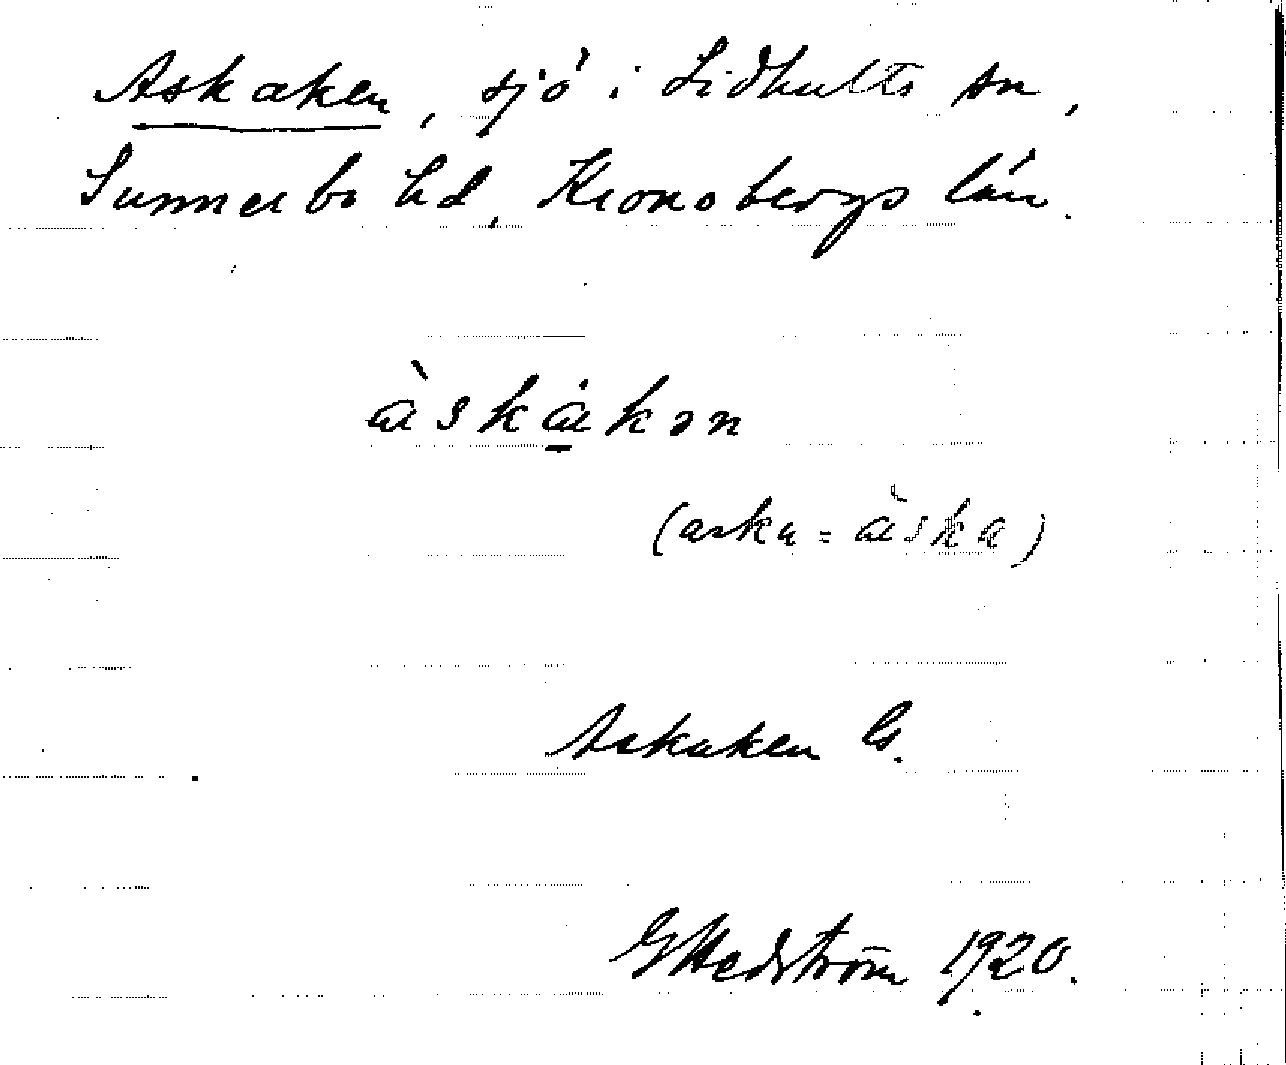 Askaken, sjö i Lidhults sn,
Sunnerbo hd, Kronobergs län.
àskákən
(aska = àska)
Askaken G.
G Hedström 1920.